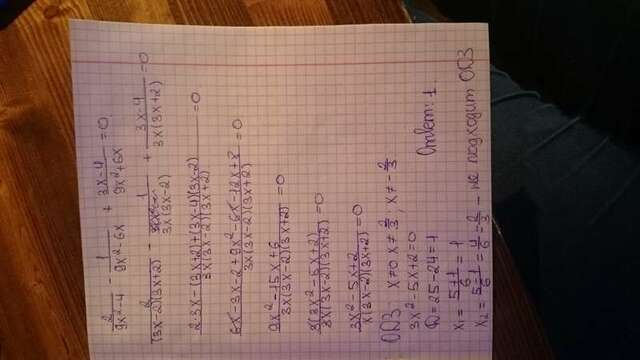 2/(9x²-4) - 1/(9x²-6x) + (3x-4)/(9x²+6x) = 0
2/((3x-2)(3x+2)) - 1/(3x(3x-2)) + (3x-4)/(3x(3x+2)) = 0
(2·3x-(3x+2)+(3x-4)(3x-2))/(3x(3x-2)(3x+2)) = 0
(6x-3x-2+9x²-6x-12x+8)/(3x(3x-2)(3x+2)) = 0
(9x²-15x+6)/(3x(3x-2)(3x+2)) = 0
3(3x²-5x+2)/(3x(3x-2)(3x+2)) = 0
(3x²-5x+2)/(x(3x-2)(3x+2)) = 0
ОДЗ: x≠0 x≠2/3; x≠-2/3
3x²-5x+2=0
D=25-24=1
Ответ: 1
x₁ = (5+1)/6 = 1
x₂ = (5-1)/6 = 4/6 = 2/3 - не подходит ОДЗ